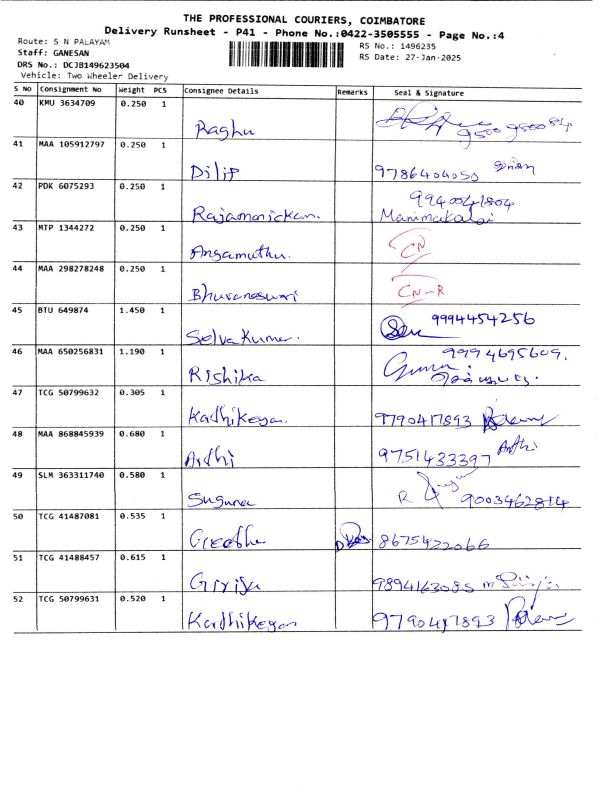 THE PROFESSIONAL COURIERS, COIMBATORE
Delivery Runsheet - P41 - Phone No.:0422-3505555 - Page No.:4
Route: S N PALAYAM RS No.: 1496235
Staff: GANESAN RS Date: 27-Jan-2025
DRS No.: DCJB149623504
Vehicle: Two Wheeler Delivery
S No Consignment No Weight PCS Consignee Details Remarks Seal & Signature
40 KMU 3634709 0.250 1
Raghu 9500950084
41 MAA 105912797 0.250 1
Dilip 9786404050
42 PDK 6075293 0.250 1 9940041804
Rajamanickam. Manimakalai
43 MTP 1344272 0.250 1
Angamuthu. CN
44 MAA 298278248 0.250 1
Bhuvaneswari CN-R
45 BTU 649874 1.450 1 9994454256
Selvakumar.
46 MAA 650256831 1.190 1 9994695609.
Rishika
47 TCG 50799632 0.305 1
Kadhikeyan. 9790417893
48 MAA 868845939 0.680 1
Ardhi 9751433397 Ardhi
49 SLM 363311740 0.580 1
Suguna R 9003462814
50 TCG 41487081 0.535 1
Geetha 8675422066
51 TCG 41488457 0.615 1
Girija 9894163085
52 TCG 50799631 0.520 1
Kardhikeyan 9790417893